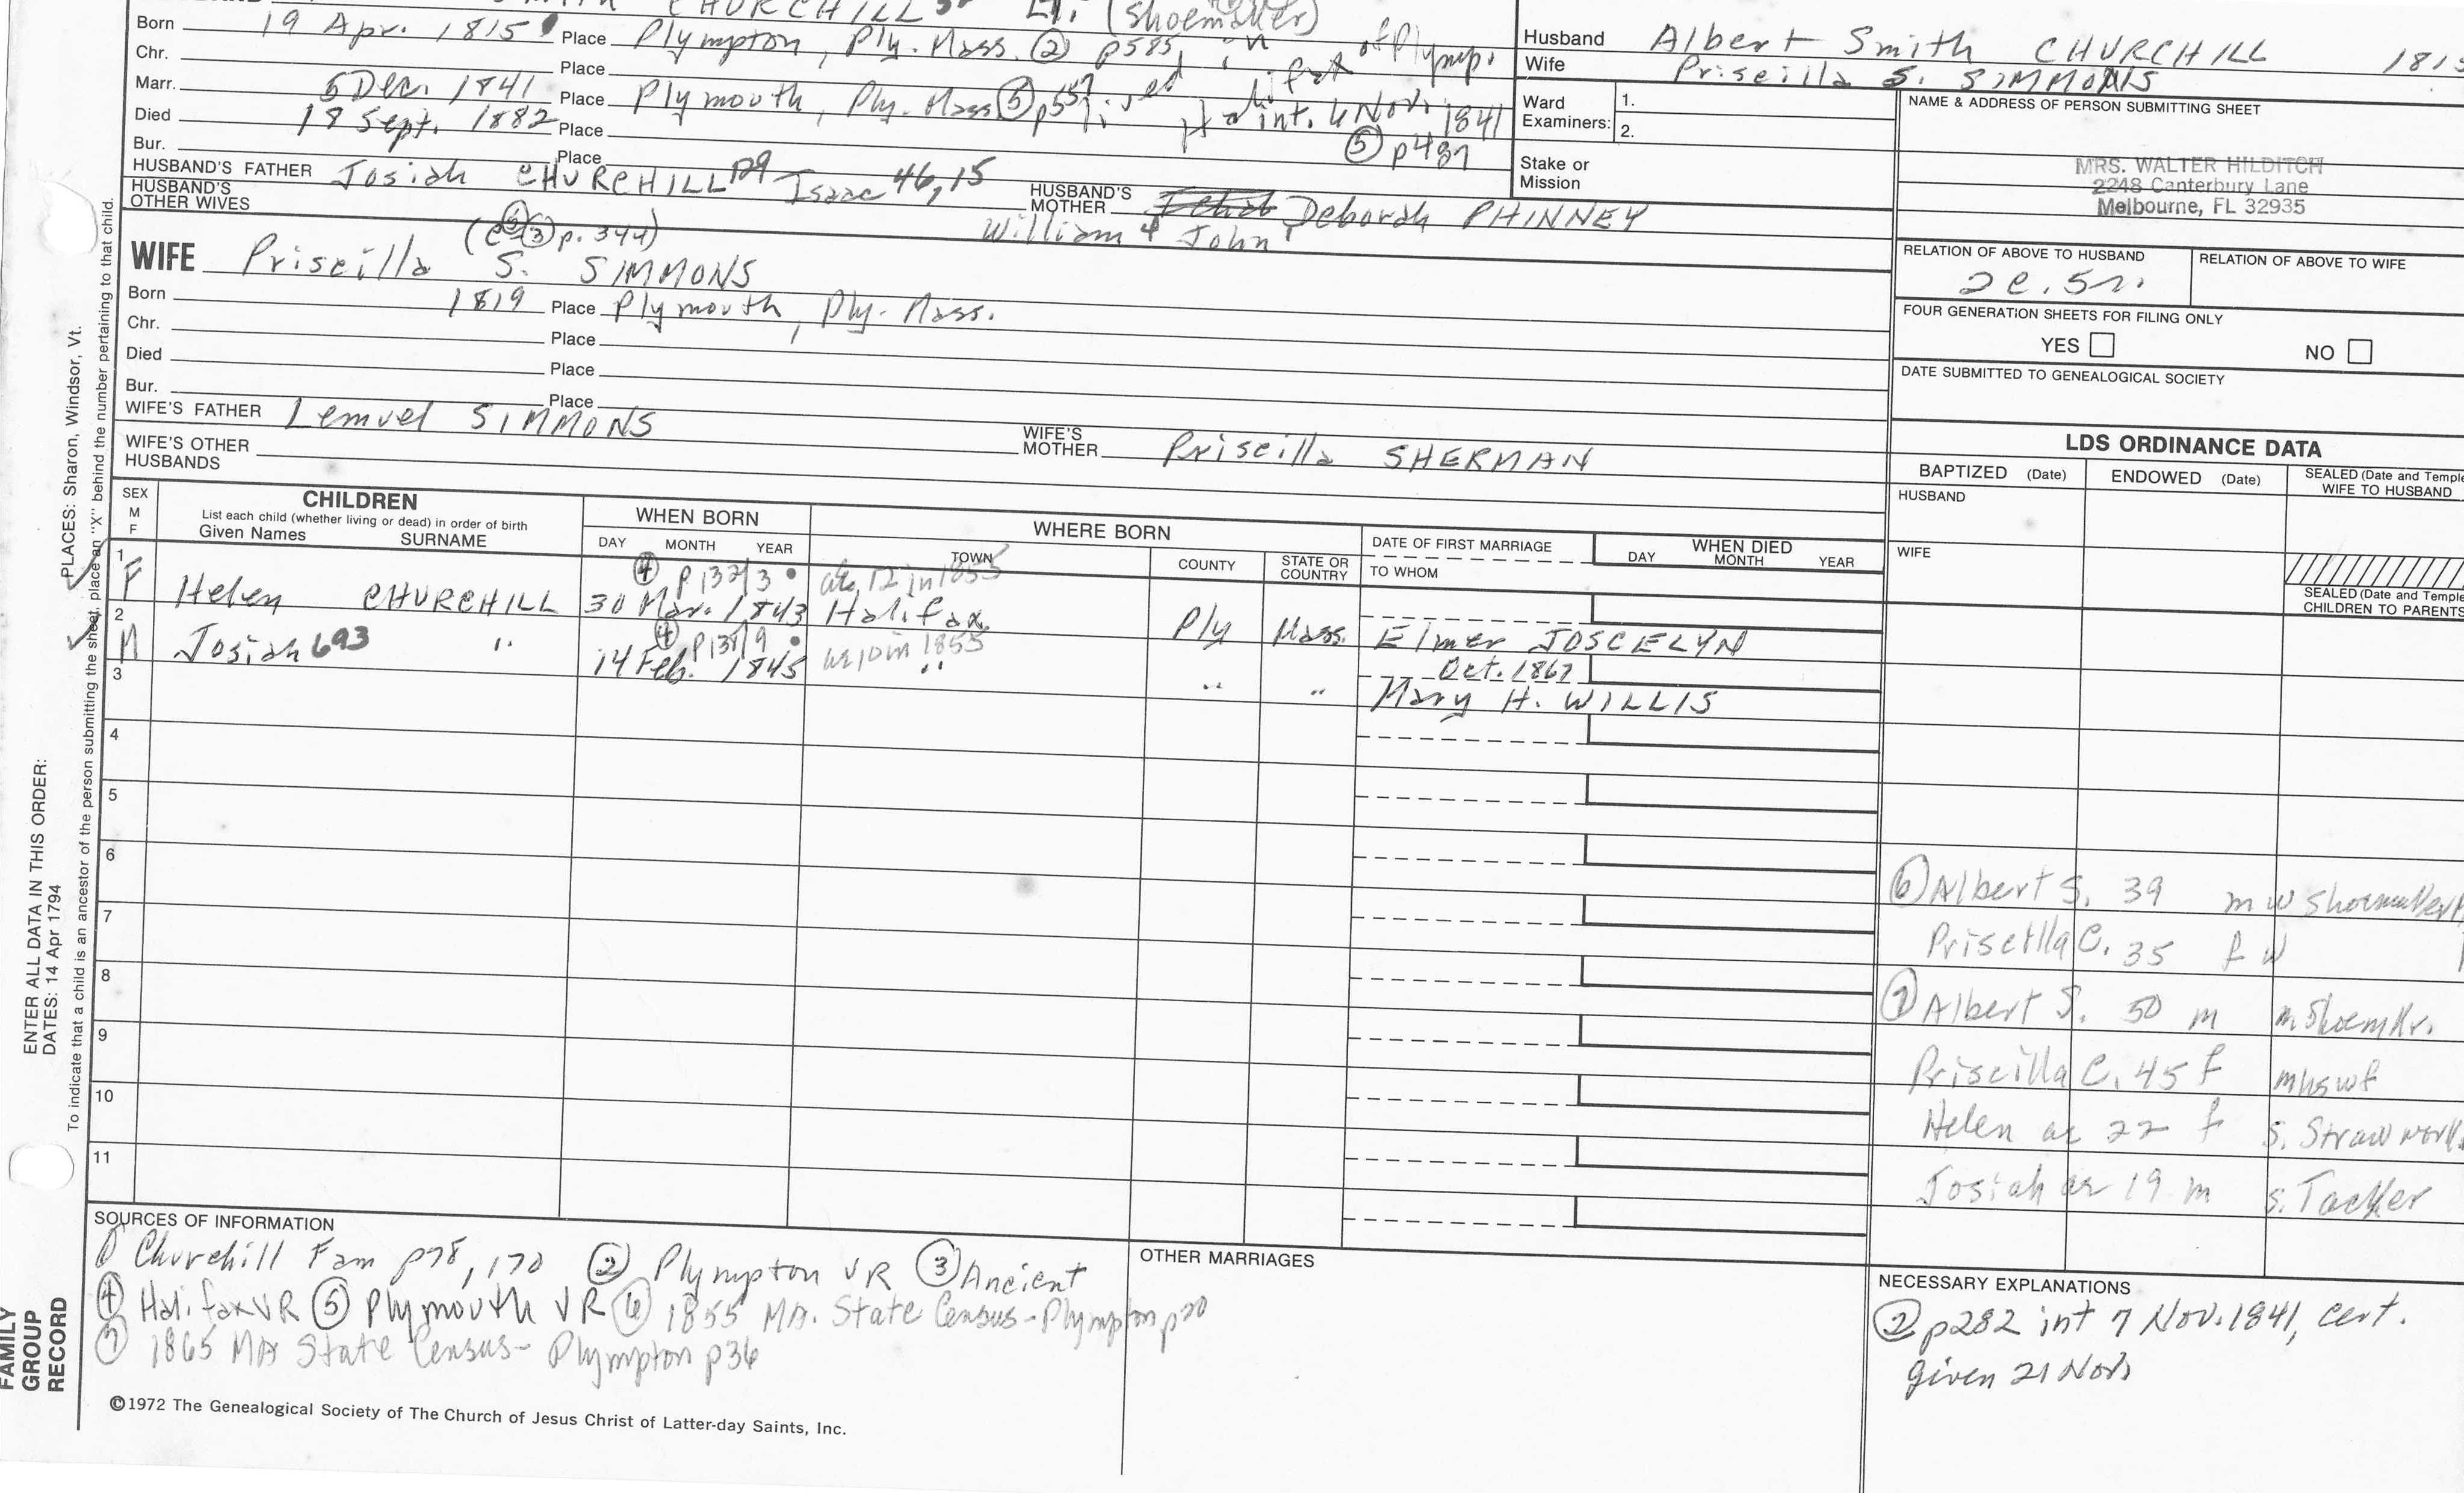 CHURCHILL (Shoemaker)
Born 19 Apr. 1815 Place Plympton, Ply. Mass. ② p585, in
Chr. Place lived Halifax of Plymp.
Marr. 5 Dec. 1841 Place Plymouth, Ply. Mass ⑤ p557 int. 6 Nov. 1841
Died 18 Sept. 1882 Place ⑤ p487
Bur. Place
HUSBAND'S FATHER Josiah CHURCHILL Isaac 46, 15 HUSBAND'S MOTHER Deborah PHINNEY
HUSBAND'S OTHER WIVES William & John
p. 344)
WIFE Priscilla S. SIMMONS
Born 1819 Place Plymouth, Ply. Mass.
Chr. Place
Died Place
Bur. Place
WIFE'S FATHER Lemuel SIMMONS WIFE'S MOTHER Priscilla SHERMAN
WIFE'S OTHER HUSBANDS
Husband Albert Smith CHURCHILL 1815
Wife Priscilla S. SIMMONS
Ward Examiners: 1.
2.
Stake or Mission
NAME & ADDRESS OF PERSON SUBMITTING SHEET
MRS. WALTER HILDITCH
2248 Canterbury Lane
Melbourne, FL 32935
RELATION OF ABOVE TO HUSBAND RELATION OF ABOVE TO WIFE
2c.5r.
FOUR GENERATION SHEETS FOR FILING ONLY
YES NO
DATE SUBMITTED TO GENEALOGICAL SOCIETY
LDS ORDINANCE DATA
BAPTIZED (Date) ENDOWED (Date) SEALED (Date and Temple
WIFE TO HUSBAND
HUSBAND
WIFE
SEALED (Date and Temple
CHILDREN TO PARENTS
SEX M F
CHILDREN
List each child (whether living or dead) in order of birth
Given Names SURNAME
WHEN BORN
DAY MONTH YEAR
WHERE BORN
TOWN COUNTY STATE OR COUNTRY
DATE OF FIRST MARRIAGE
TO WHOM
WHEN DIED
DAY MONTH YEAR
1 ④ p132/3 ae 12 in 1855
F Helen CHURCHILL 30 Mar. 1843 Halifax Ply Mass. Elmer JOSCELYN
2 ④ p131/9 ae 10 in 1855 Oct. 1867
M Josiah 693 " 14 Feb. 1845 " " " Mary H. WILLIS
3
4
5
6
7
8
9
10
11
⑥ Albert S. 39 m w Shoemaker
Priscilla C. 35 f w
⑦ Albert S. 50 m m. Shoemkr.
Priscilla C. 45 f m hswf
Helen ae 22 f s. Straw work
Josiah ae 19 m s. Tacker
SOURCES OF INFORMATION
① Churchill Fam p78, 170 ② Plympton VR ③ Ancient
④ Halifax VR ⑤ Plymouth VR ⑥ 1855 MA. State Census - Plympton p20
⑦ 1865 MA State Census - Plympton p36
OTHER MARRIAGES
NECESSARY EXPLANATIONS
② p282 int 7 Nov. 1841, cert.
given 21 Nov.
©1972 The Genealogical Society of The Church of Jesus Christ of Latter-day Saints, Inc.
FAMILY GROUP RECORD
ENTER ALL DATA IN THIS ORDER:
DATES: 14 Apr 1794
PLACES: Sharon, Windsor, Vt.
To indicate that a child is an ancestor of the person submitting the sheet, place an "X" behind the number pertaining to that child.